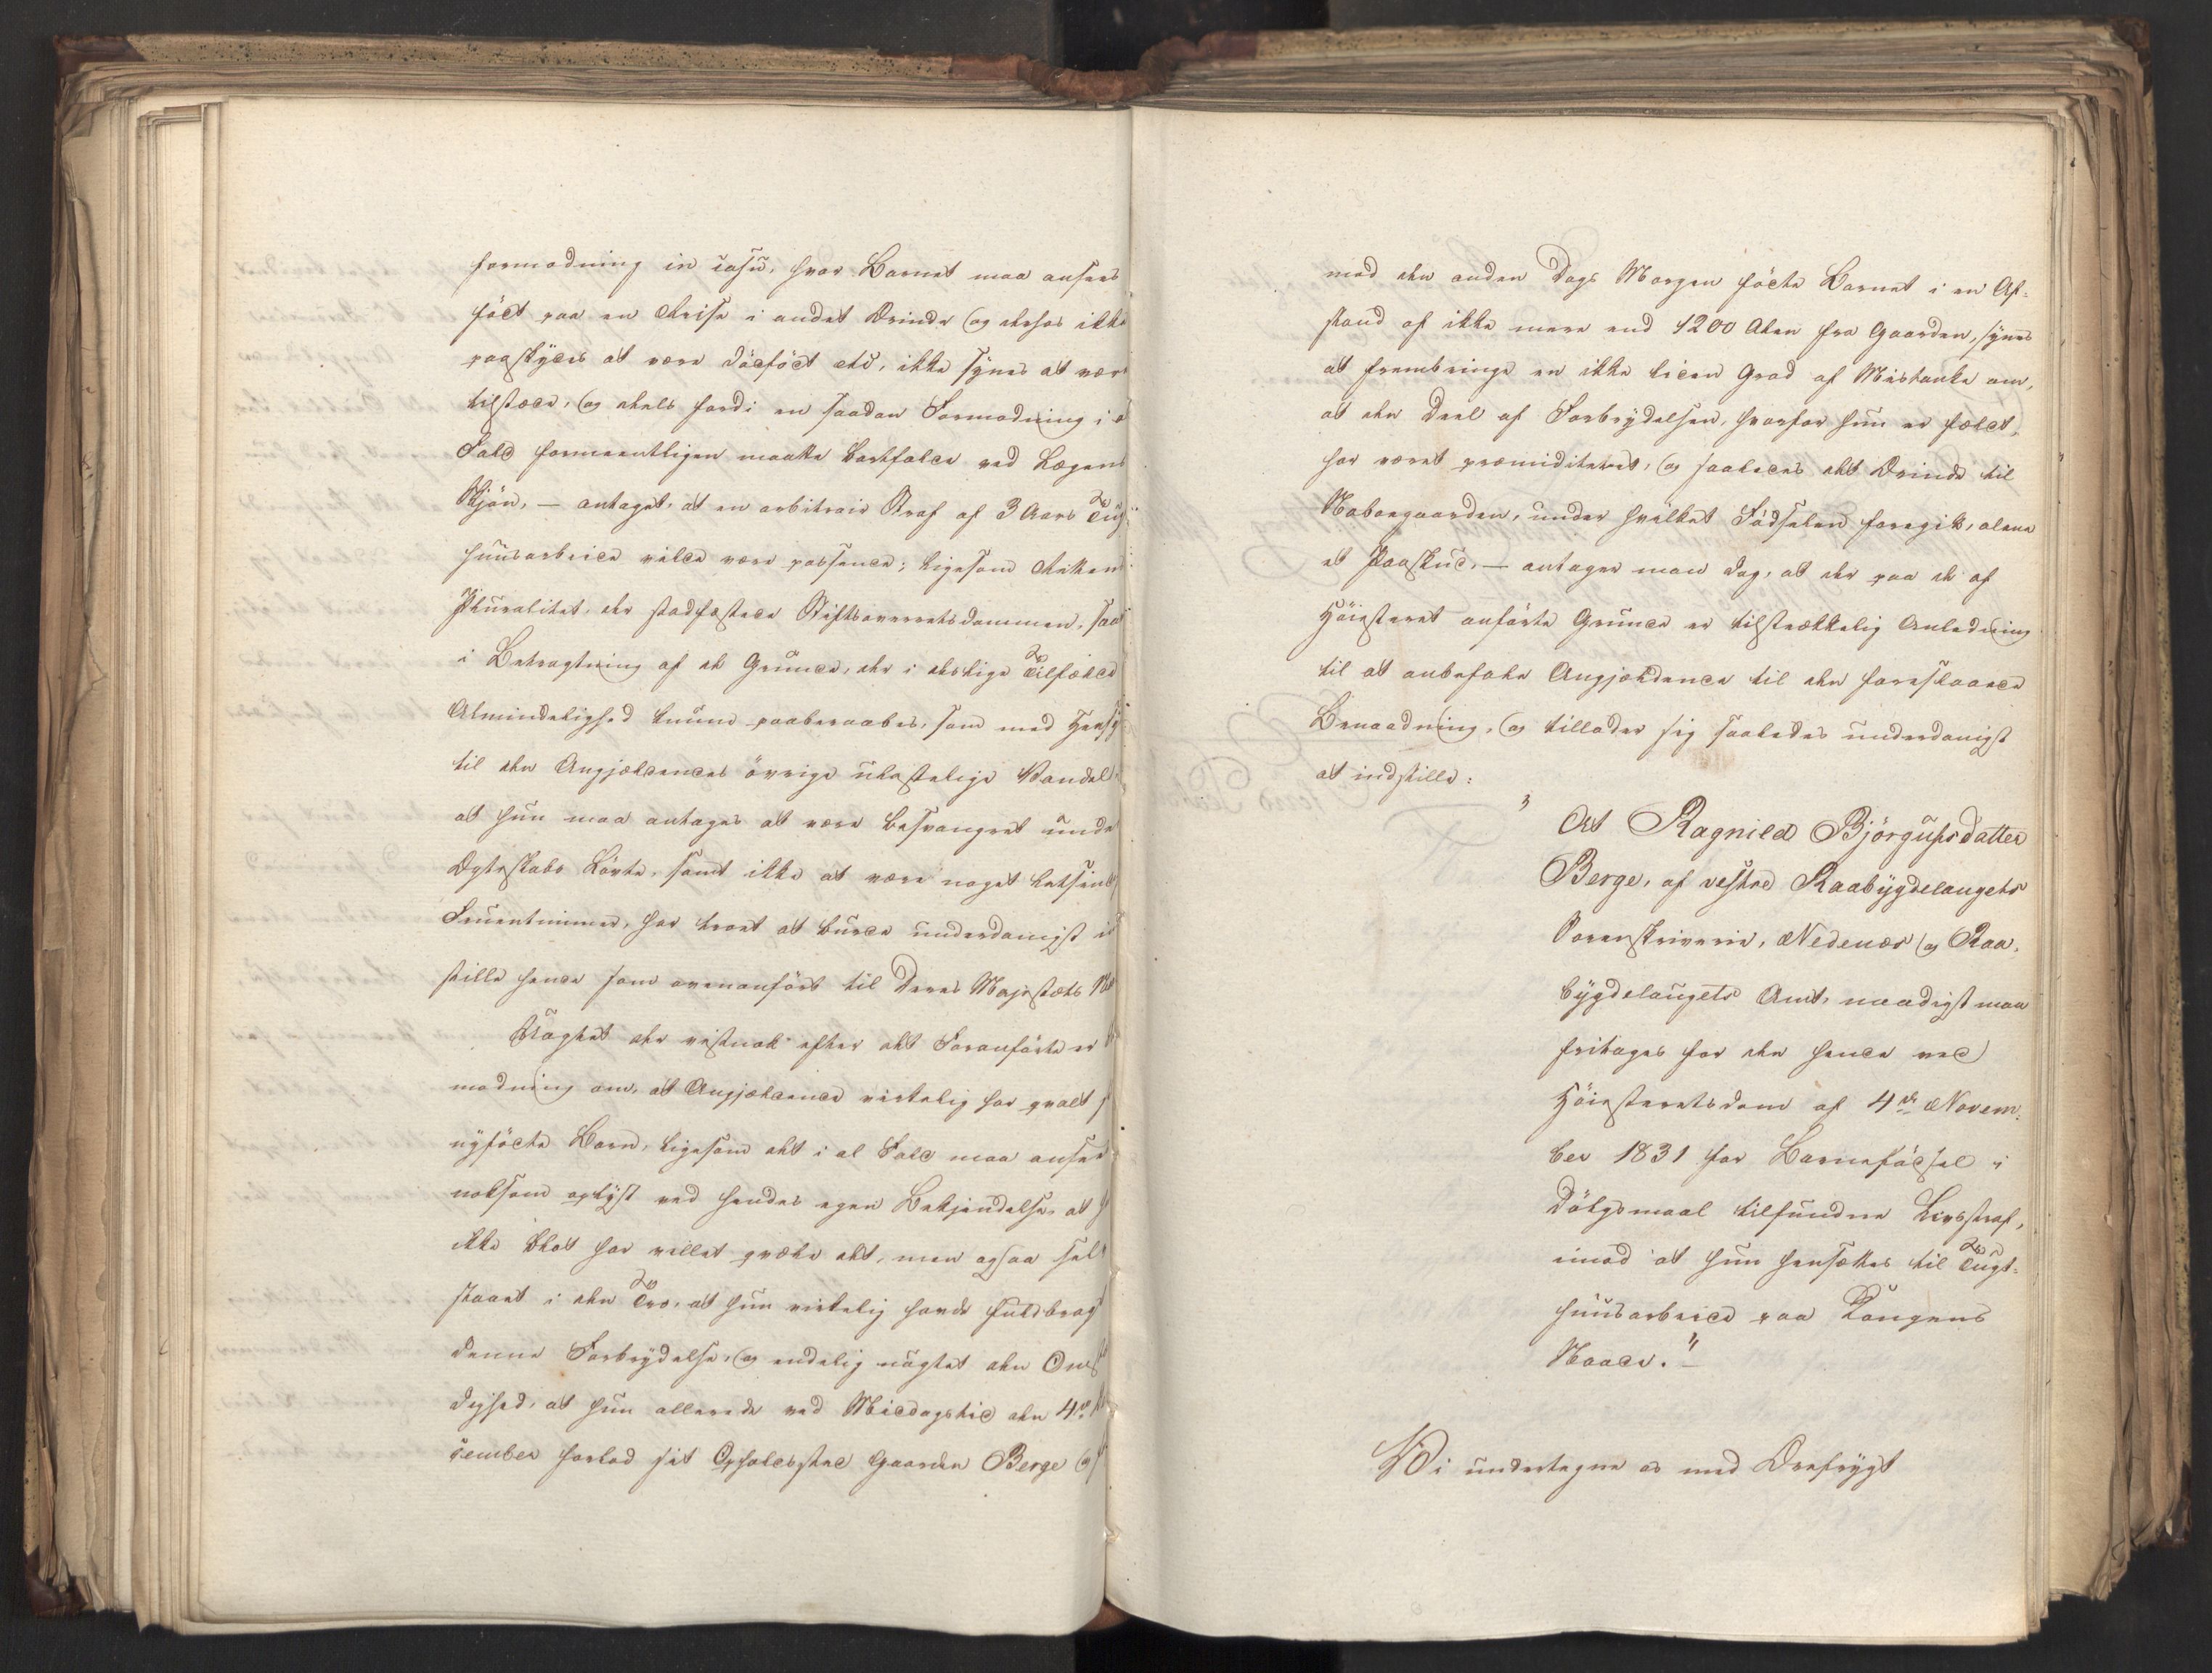 formodning in casu, hvor Barnet maa ansees
født paa en Reise i andet Ærinde (og derfor ikke
paaskydes at være dødfødt etc, ikke synes at være
tilstæde, og deels fordi en saadan Formodning i
Fald formeentligen maatte bortfalde ved Lægens
Skjøn, — antaget, at en arbitrair Straf af 3 Aars Tugt
huusarbeide vilde være passende; ligesom Rettens
Pluralitet, der stadfæstede Stiftsoverretsdommen, saavel
i Betragtning af de Grunde, der i deslige Tilfælde
Almindelighed kunne paaberaabes, som med Hensyn
til den Angjældendes øvrige ulastelige Vandel
at hun maa antages at være besvangret under
Ægteskabs Løvte, samt ikke at være noget letsindigt
Fruentimmer, har troet at burde underdanigst
stille hende som ovenanført til Deres Majestæts
Uagtet der vistnok efter det Foranførte er
modning om, at Angjældende virkelig har qvalt
nyfødte Barn, ligesom det i al Fald maa ansees
noksom oplyst ved hendes egen Bekjendelse, at
ikke blot har villet qvæle det, men ogsaa selv
staaet i den Tro, at hun virkelig havde fuldbragt
denne Forbrydelse, og endelig uagtet den Omstæn
dighed, at hun allerede ved Middagstid den 4de
cember forlod sit Opholdssted Gaarden Berge og
med den anden Dags Morgen fødte Barnet i en Af-
stand af ikke mere end 1200 Alen fra Gaarden, synes
at frembringe en ikke liden Grad af Mistanke om,
at den Deel af Forbrydelsen, hvorfor hun er fældet,
har været præmediteret, og saaledes det Ærinde til
Nabogaarden, under hvilket Fødselen foregik, alene
et Paaskud, — antager man dog, at der paa de af
Høiesteret anførte Grunde er tilstrækkelig Anledning
til at anbefale Angjældende til den foreslaaede
Benaadning, og tillader sig saaledes underdanigst
at indstille:
"At Ragnild Bjørgufsdatter
Berge, af vestre Raabygdelaugets
Sorenskriverie, Nedenæs og Raa-
bygdelaugets Amt, naadigst maa
fritages for den hende ved
Høiesteretsdom af 4de Novem-
ber 1831 for Barnefødsel i
Dølgsmaal tilfundne Livsstraf,
imod at hun hensættes til Tugt-
huusarbeide paa Kongens
Naade."
Vi undertegne os med Ærefrygt